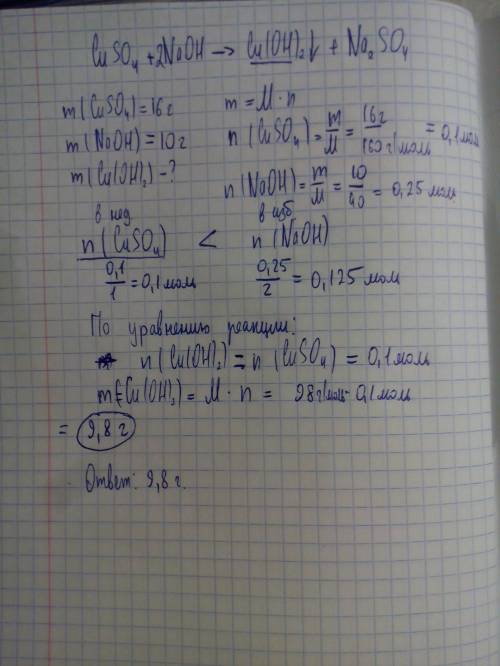 CuSO₄ + 2NaOH → Cu(OH)₂↓ + Na₂SO₄
m(CuSO₄) = 16г
m(NaOH) = 10г
m(Cu(OH)₂) - ?
m = M · n
n(CuSO₄) = m/M = 16г/160г/моль = 0,1моль
n(NaOH) = m/M = 10/40 = 0,25 моль
в нед в изб
n(CuSO₄) < n(NaOH)
0,1/1 = 0,1моль 0,25/2 = 0,125 моль
По уравнению реакции:
n(Cu(OH)₂) = n(CuSO₄) = 0,1моль
m(Cu(OH)₂) = M · n = 98г/моль · 0,1моль
= 9,8 г
Ответ: 9,8 г.